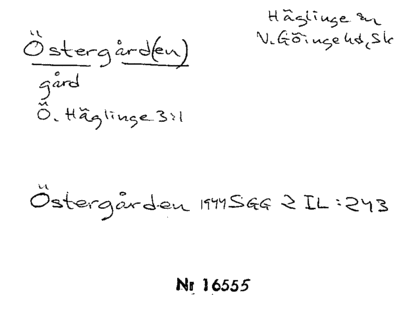 Häglinge sn
V. Göinge hd, Sk
Östergård(en)
gård
Ö. Häglinge 3:1
Östergården 1944 SGG 2 IL:243
Nr 16555